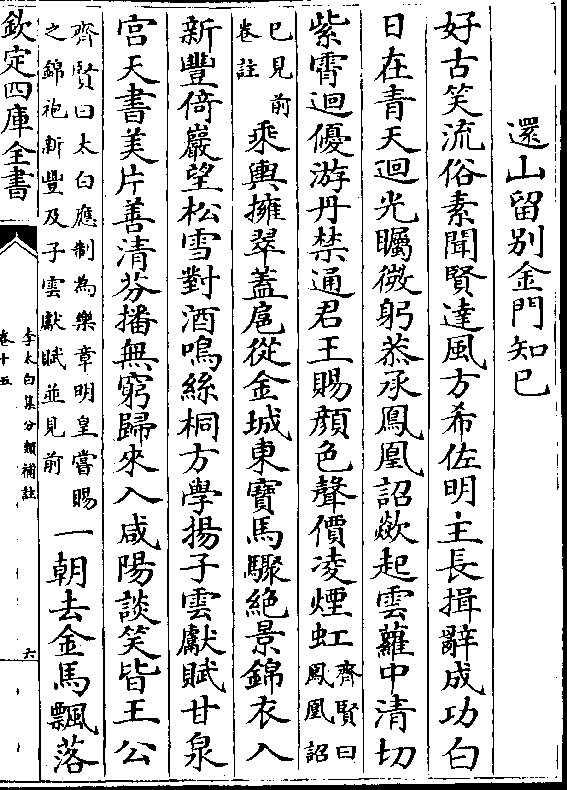 還山留別金門知已
好古笑流俗素聞賢達風方希佐明主長揖辭成功白
日在青天迴光矚微躬恭承鳳凰詔歘起雲蘿中清切
紫霄迴優游丹禁通君王賜顏色聲價凌煙虹齊賢曰鳳凰詔
已見前卷註乘輿擁翠蓋扈從金城東寶馬驟絶景錦衣入
新豐倚巖望松雪對酒鳴絲桐方學揚子雲獻賦甘泉
宫天書美片善清芬播無窮歸來入咸陽談笑皆王公
齊賢曰太白應制為樂章明皇嘗賜之錦袍新豐及子雲獻賦並見前一朝去金馬飄落
欽定四庫全書
李太白集分類補註
卷十五
六